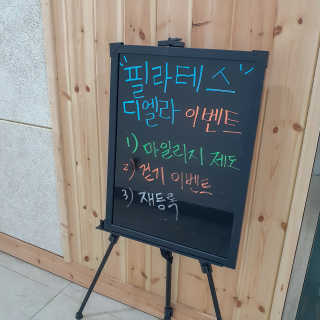 "필라테스"
디엘라 이벤트
1) 마일리지 제도
2) 걷기 이벤트
3) 재등록